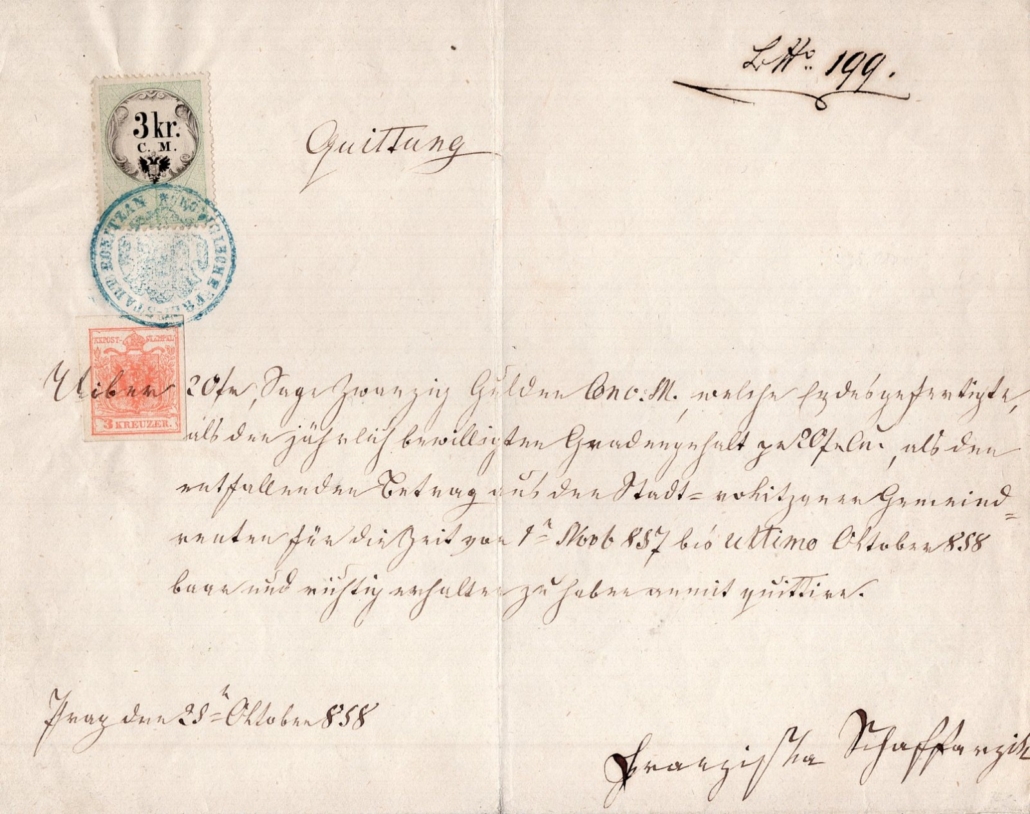 LttNo. 199.
3 kr.
C. M.
KÖNIGLICHE FREISTADT ROKITZAN
Quittung
KK.POST-STEMPEL
3 KREUZER.
Uiber 20 fr, Sage Zwanzig Gulden Conv. M., welche Endesgefertigte,
als den jährlich bewilligten Gnadengehalt pr 20 fr, als den
entfallenden Betrag aus den Stadt= rokitzaner Gemeind=
renten für die Zeit vom 1n Novb 857 bis ultimo Oktober 858
baar und richtig erhalten zu haben anmit quittire.
Prag den 25n Oktober 858
Franziska Schaffarzik